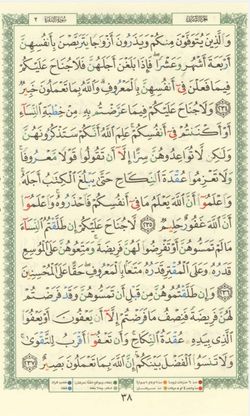 وَالَّذِينَ يُتَوَفَّوْنَ مِنكُمْ وَيَذَرُونَ أَزْوَاجًا يَتَرَبَّصْنَ بِأَنفُسِهِنَّ
أَرْبَعَةَ أَشْهُرٍ وَعَشْرًا فَإِذَا بَلَغْنَ أَجَلَهُنَّ فَلَا جُنَاحَ عَلَيْكُمْ
فِيمَا فَعَلْنَ فِي أَنفُسِهِنَّ بِالْمَعْرُوفِ وَاللَّهُ بِمَا تَعْمَلُونَ خَبِيرٌ
٢٣٤ وَلَا جُنَاحَ عَلَيْكُمْ فِيمَا عَرَّضْتُم بِهِ مِنْ خِطْبَةِ النِّسَاءِ
أَوْ أَكْنَنتُمْ فِي أَنفُسِكُمْ عَلِمَ اللَّهُ أَنَّكُمْ سَتَذْكُرُونَهُنَّ
وَلَٰكِن لَّا تُوَاعِدُوهُنَّ سِرًّا إِلَّا أَن تَقُولُوا قَوْلًا مَّعْرُوفًا
وَلَا تَعْزِمُوا عُقْدَةَ النِّكَاحِ حَتَّىٰ يَبْلُغَ الْكِتَابُ أَجَلَهُ
وَاعْلَمُوا أَنَّ اللَّهَ يَعْلَمُ مَا فِي أَنفُسِكُمْ فَاحْذَرُوهُ وَاعْلَمُوا
أَنَّ اللَّهَ غَفُورٌ حَلِيمٌ ٢٣٥ لَّا جُنَاحَ عَلَيْكُمْ إِن طَلَّقْتُمُ النِّسَاءَ
مَا لَمْ تَمَسُّوهُنَّ أَوْ تَفْرِضُوا لَهُنَّ فَرِيضَةً وَمَتِّعُوهُنَّ عَلَى الْمُوسِعِ
قَدَرُهُ وَعَلَى الْمُقْتِرِ قَدَرُهُ مَتَاعًا بِالْمَعْرُوفِ حَقًّا عَلَى الْمُحْسِنِينَ
٢٣٦ وَإِن طَلَّقْتُمُوهُنَّ مِن قَبْلِ أَن تَمَسُّوهُنَّ وَقَدْ فَرَضْتُمْ
لَهُنَّ فَرِيضَةً فَنِصْفُ مَا فَرَضْتُمْ إِلَّا أَن يَعْفُونَ أَوْ يَعْفُوَا
الَّذِي بِيَدِهِ عُقْدَةُ النِّكَاحِ وَأَن تَعْفُوا أَقْرَبُ لِلتَّقْوَىٰ
وَلَا تَنسَوُا الْفَضْلَ بَيْنَكُمْ إِنَّ اللَّهَ بِمَا تَعْمَلُونَ بَصِيرٌ ٢٣٧
٣٨